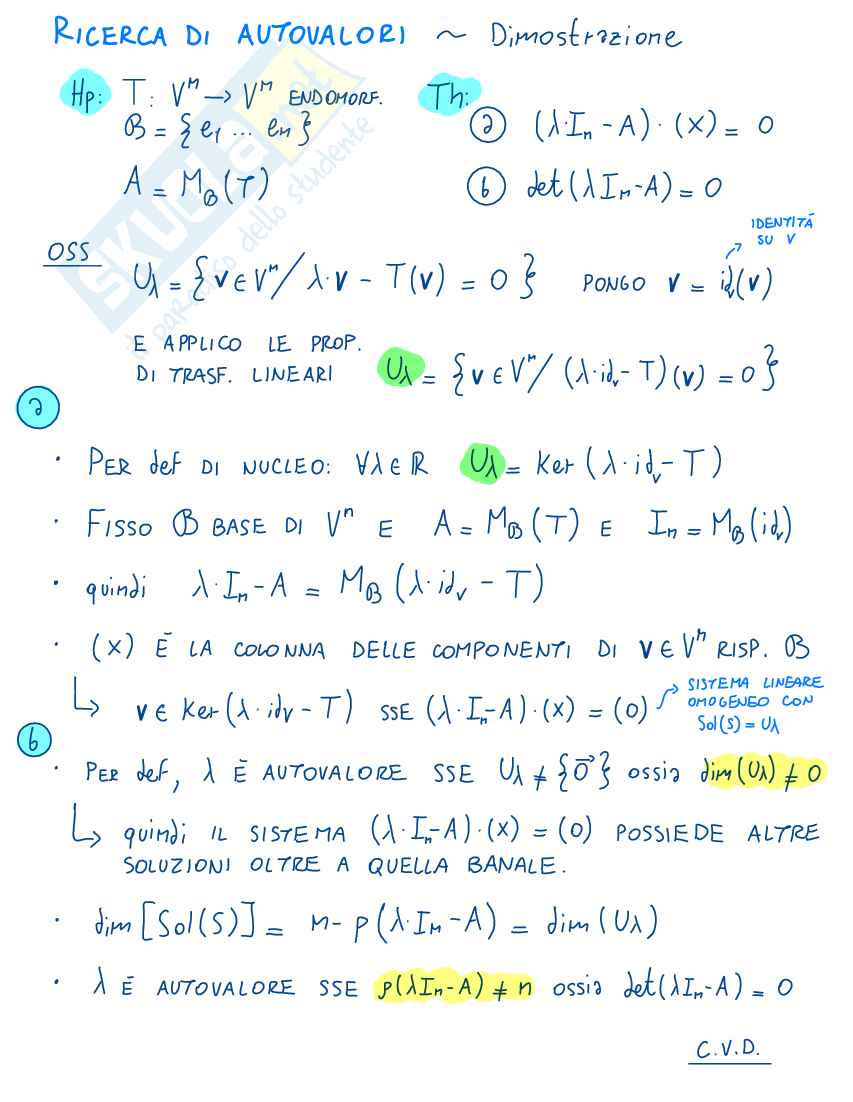 RICERCA DI AUTOVALORI ~ Dimostrazione
Hp: T: Vⁿ → Vⁿ ENDOMORF. Th:
B = {e₁ ... eₙ} ⓐ (λ·Iₙ - A)·(X) = 0
A = M_B(T) ⓑ det(λIₙ-A) = 0
SKUOLA.net
il paradiso dello studente
IDENTITÁ
SU V
OSS U_λ = {v ∈ Vⁿ / λ·v - T(v) = 0} PONGO v = id_v(v)
E APPLICO LE PROP.
DI TRASF. LINEARI U_λ = {v ∈ Vⁿ / (λ·id_v - T)(v) = 0}
ⓐ
· PER def DI NUCLEO: ∀λ∈ℝ U_λ = Ker(λ·id_v - T)
· FISSO B BASE DI Vⁿ E A = M_B(T) E Iₙ = M_B(id_v)
· quindi λ·Iₙ - A = M_B(λ·id_v - T)
· (X) É LA COLONNA DELLE COMPONENTI DI v ∈ Vⁿ RISP. B
↳ v ∈ Ker(λ·id_v - T) SSE (λ·Iₙ-A)·(X) = (0) → SISTEMA LINEARE
OMOGENEO CON
Sol(S) = U_λ
ⓑ
· PER def, λ É AUTOVALORE SSE U_λ ≠ {0⃗} ossia dim(U_λ) ≠ 0
↳ quindi IL SISTEMA (λ·Iₙ-A)·(X) = (0) POSSIEDE ALTRE
SOLUZIONI OLTRE A QUELLA BANALE.
· dim[Sol(S)] = n - ρ(λ·Iₙ - A) = dim(U_λ)
· λ É AUTOVALORE SSE ρ(λIₙ-A) ≠ n ossia det(λIₙ-A) = 0
C.V.D.